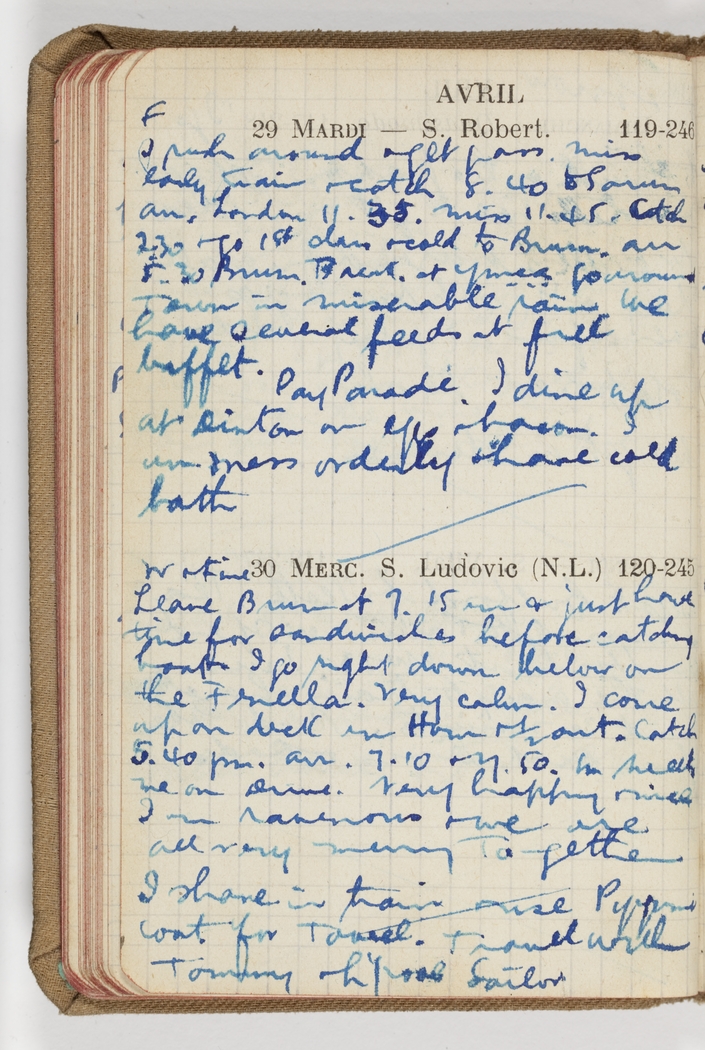 AVRIL
F
29 MARDI — S. Robert. 119-246
I rush around & get pass. miss
early train & catch 8.40
arr. London 11.35. miss 11.45. Catch
2.30 & go 1st class & cold to Brum. arr
5.30 Brum. at Ymca Go around
Town in miserable rain we
have several feeds at free
buffet.
Pay Parade. I dine up
at on egg & bacon. I
am mess orderly & have cold
bath
30 MERC. S. Ludovic (N.L.) 120-245
Leave Brum at 7.15 am & just have
time for sandwiches before catching
boat. I go right down below on
the Fenella. Very calm. I come
up on deck in Hom & S, out. Catch
5.40 pm. arr. 7.10 & 7.50.
me on Very happy & nice
I am ravenous & we are
all very merry Together
I shave in train & use
coat for Towel. Travel with
Tommy & L'pool Sailor